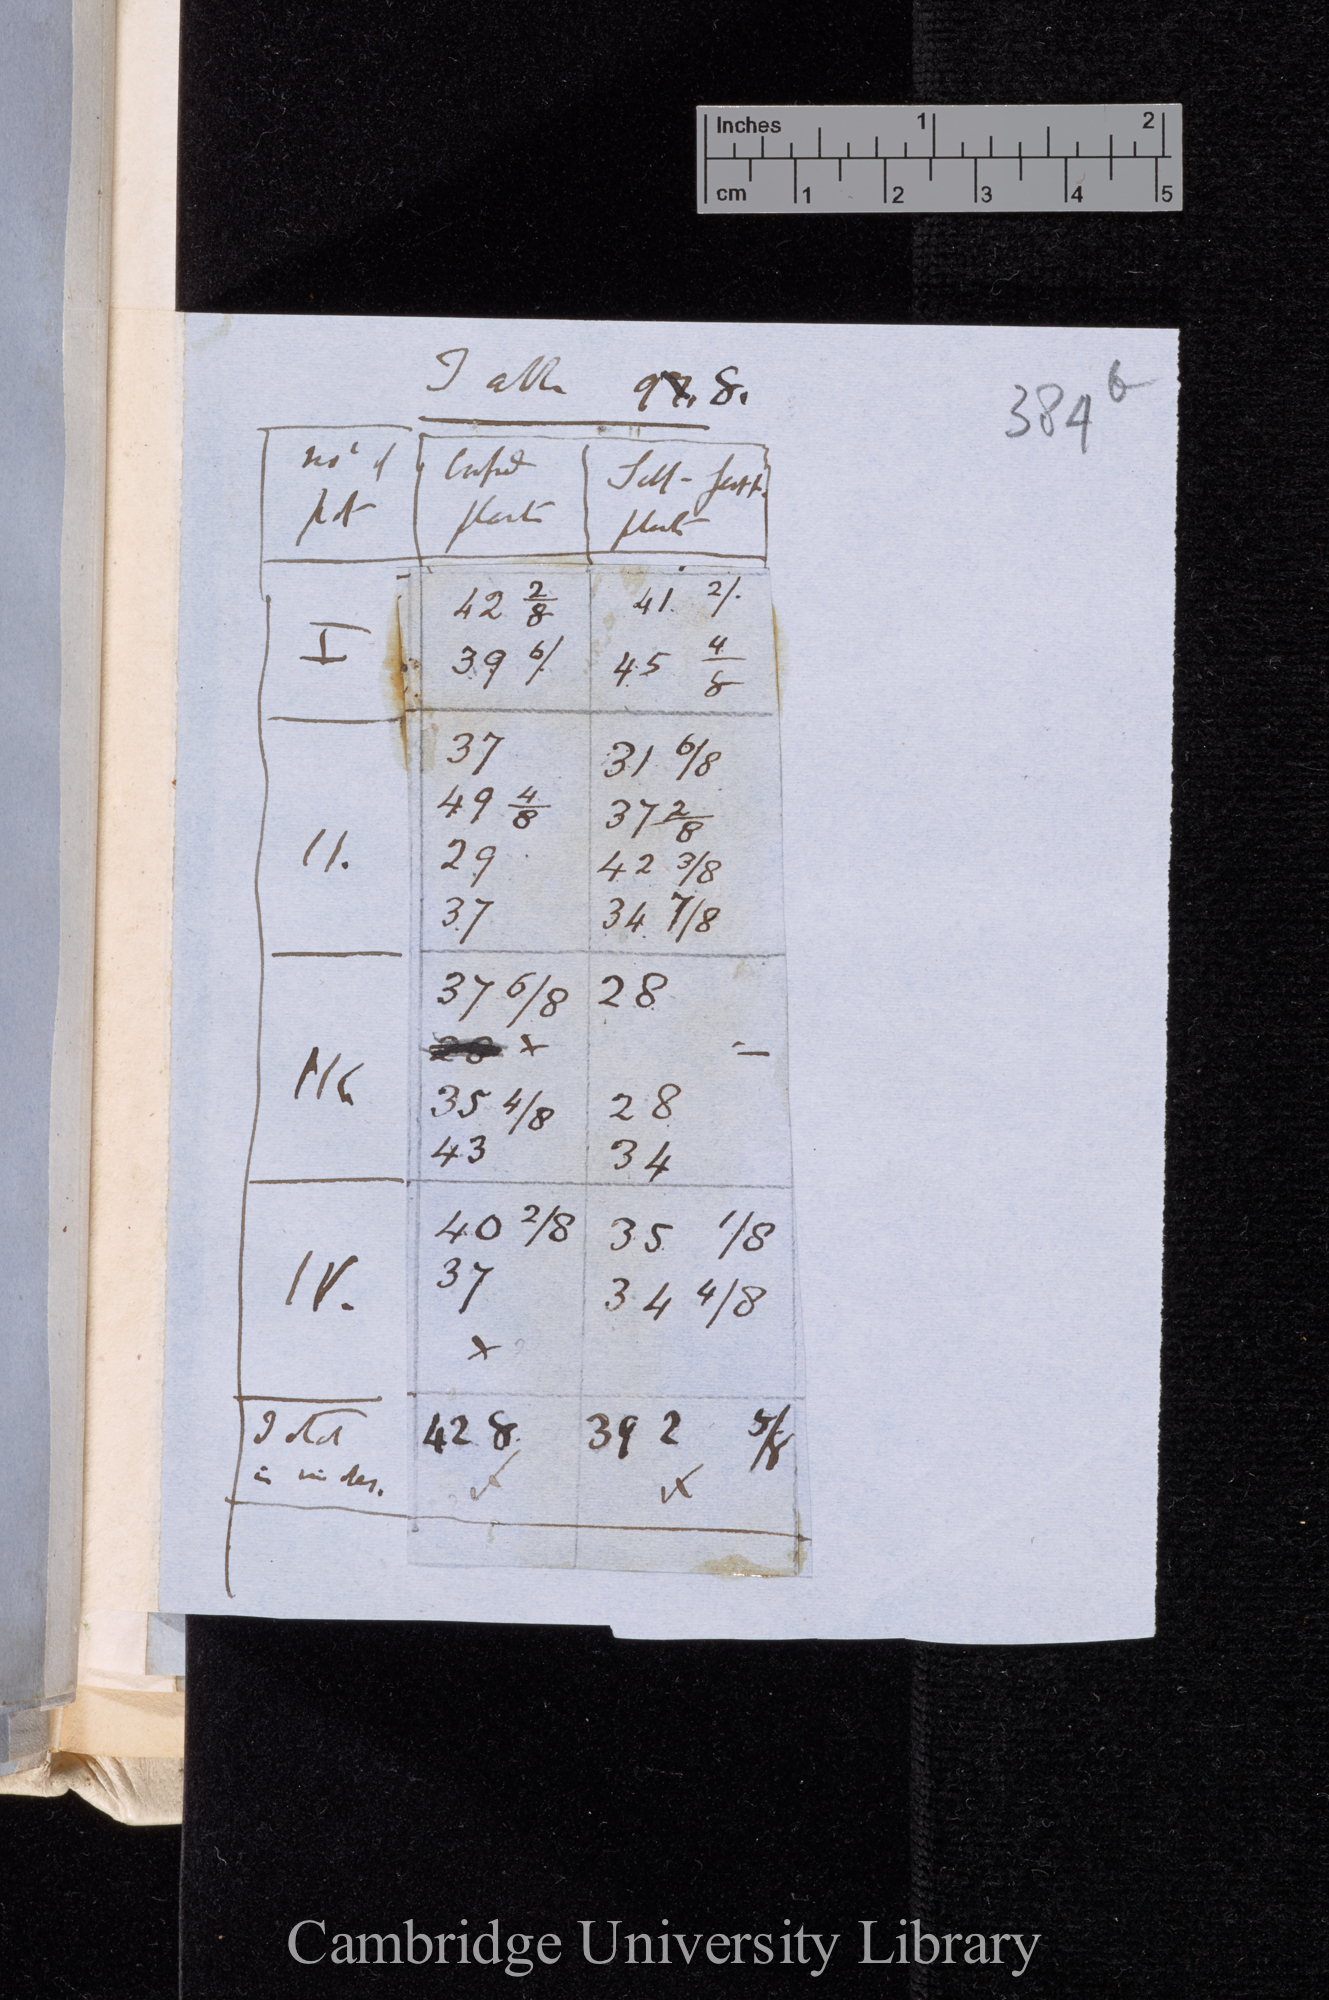 Inches 1 2
cm 1 2 3 4 5
Table 97. 8.
384 b
No of Crossed Self-fert.
pot plants plants
I 42 2/8 41 2/.
39 6/. 45 4/8
37 31 6/8
49 4/8 37 2/8
II. 29 42 3/8
37 34 7/8
37 6/8 28
28 x —
III. 35 4/8 28
43 34
40 2/8 35 1/8
IV. 37 34 4/8
x
Total 428. 392 5/8
in inches. x x
Cambridge University Library